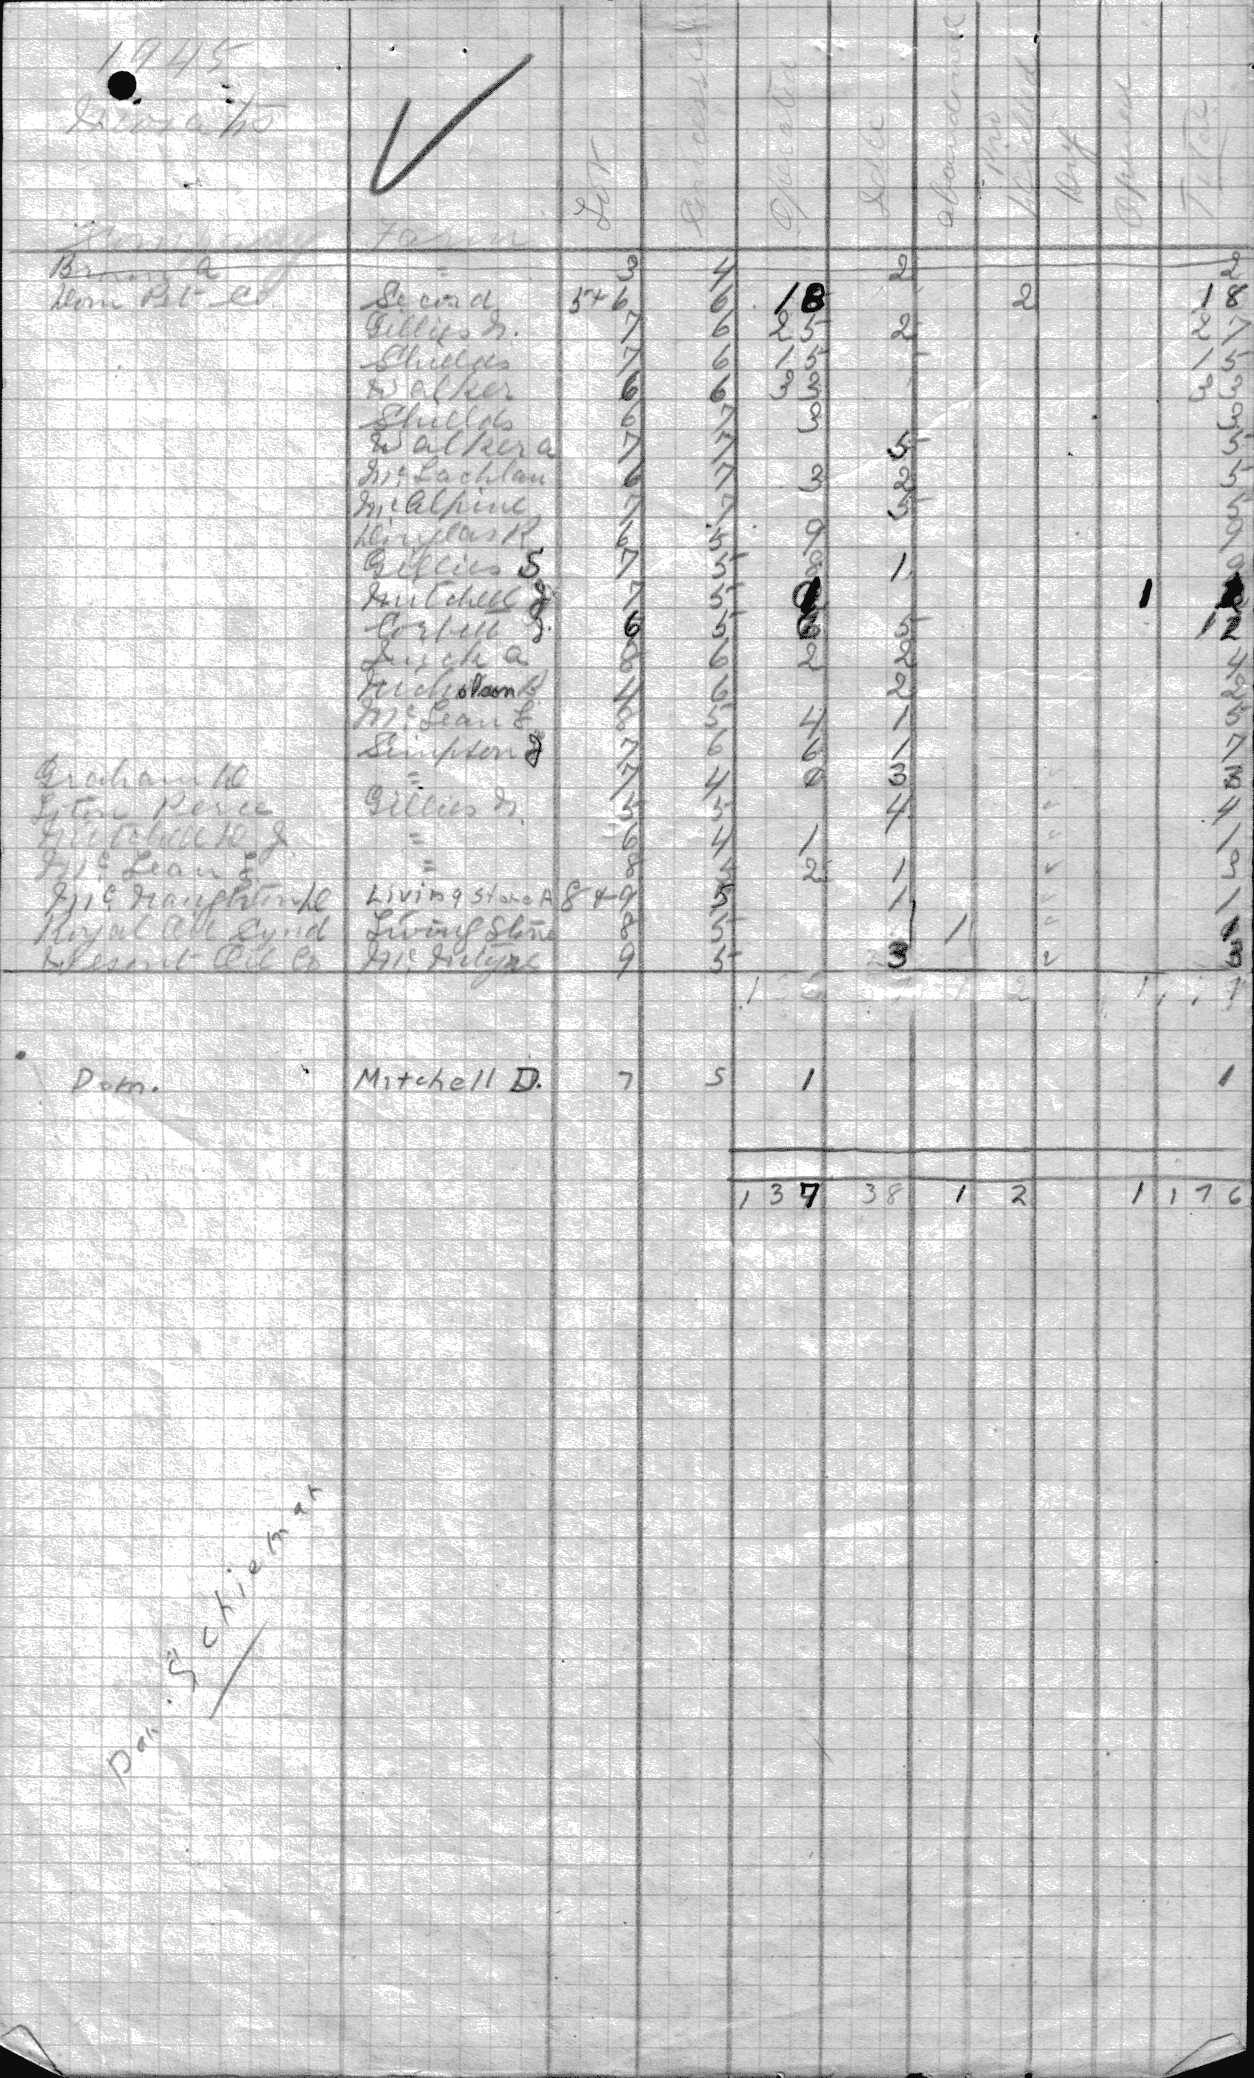 1945
Mosa
Company Farm Lot Concession Operated Idle Abandoned Pro Drilled Dry Opened Total
Brown A " 3 4 2 2
Dom Pet Co. Secord 5+6 6 18 2 18
Gillies N. 7 6 25 2 27
Shields 7 6 15 15
Walker 6 6 33 33
Shields 6 7 3 3
Walker A 7 7 5 5
McLachlan 6 7 3 2 5
McAlpine 7 7 5 5
Douglas R 6 5 9 9
Gillies S 7 5 8 1 9
Mitchell J 7 5 1 1
Corbett J. 6 5 5
Leitch A 8 6 2 2 4
Nicholson D 4 6 2 2
McLean J 8 5 4 1 5
Simpson J 7 6 6 1 7
Graham D " 7 4 3 3
Pierce Gillies N. 5 5 4 4
Mitchell D. J. " 6 4 1 1
McLean J " 8 5 2 1 3
McNaughton D Livingstone A 8+9 5 1 1
Royal Oil Synd Livingstone 8 5 1 1
Oil Co McIntyre 9 5 3 3
Dom. Mitchell D. 7 5 1 1
137 38 1 2 1 176
Dan. Schieman